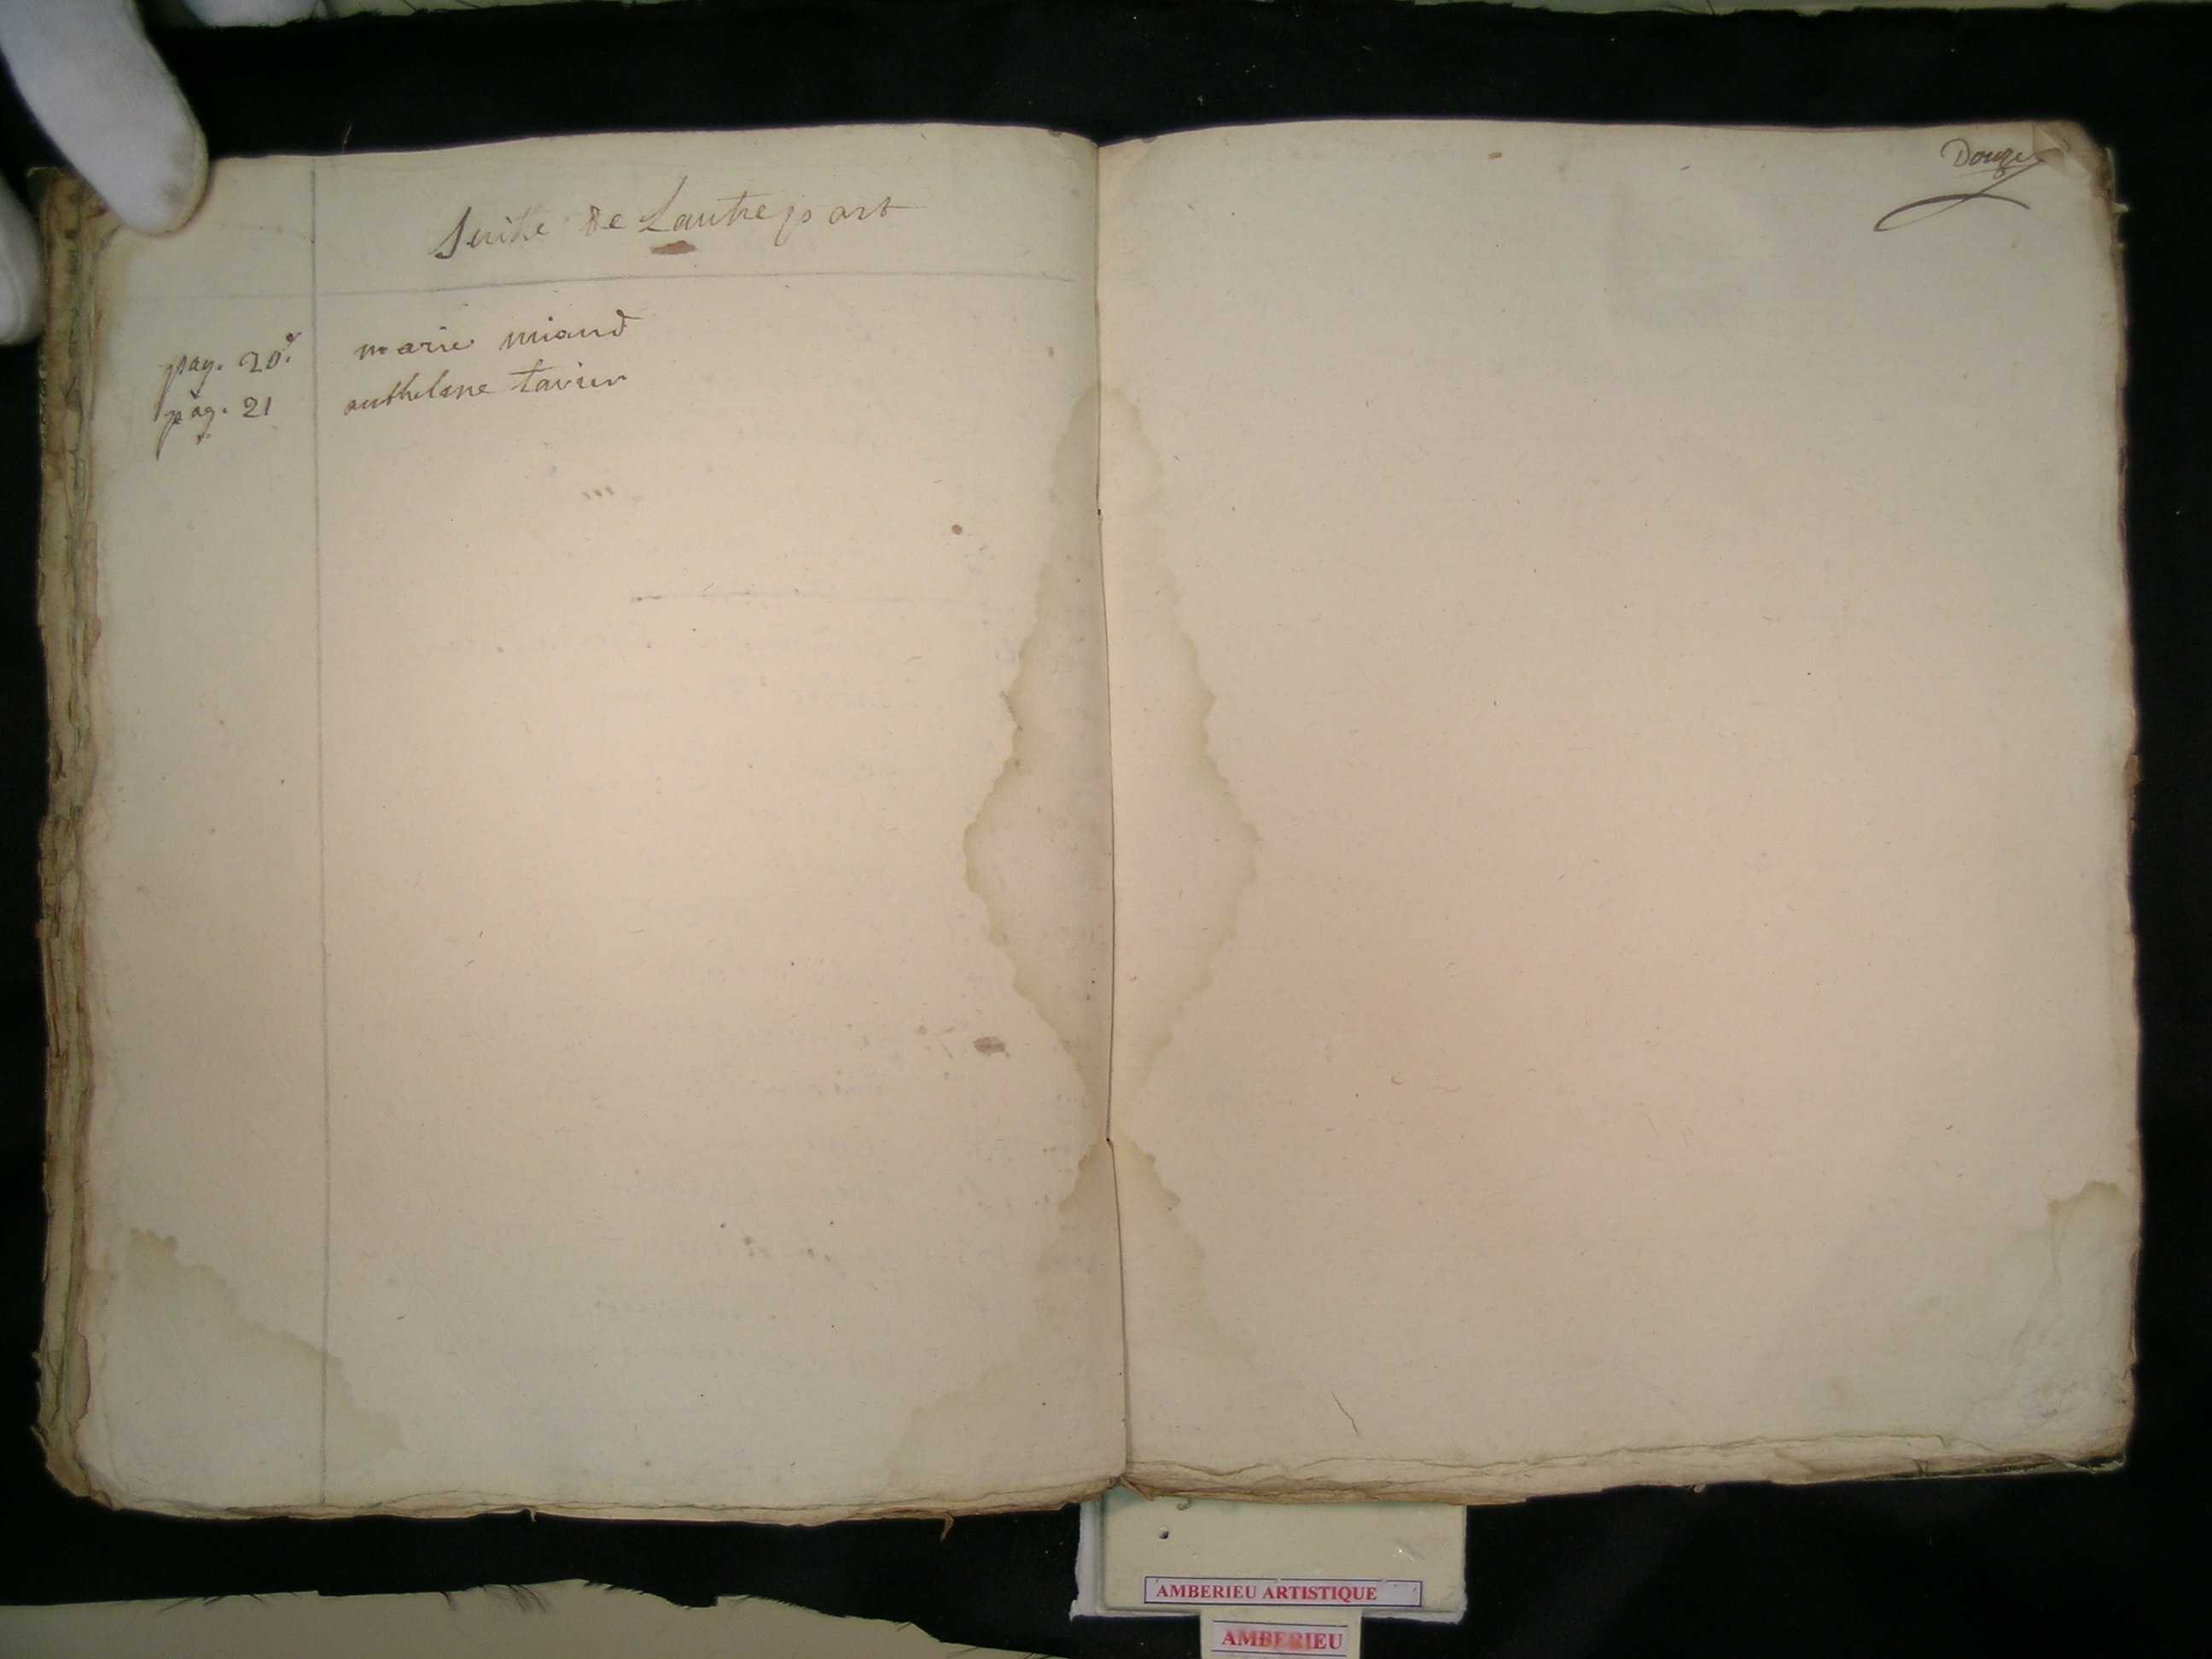 Suite De Lautre part
pag. 20.e marie miand
pag. 21 anthelme tavier
Douze
AMBERIEU ARTISTIQUE
AMBERIEU